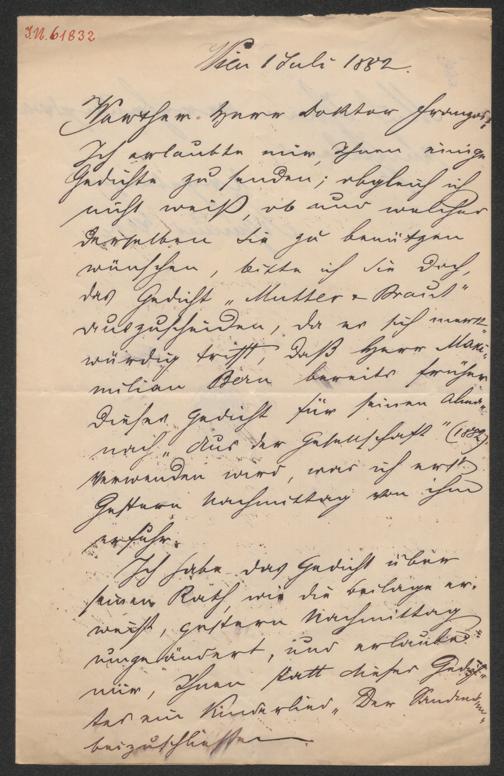 I.N. 61832
Wien 1 Juli 1882.
Werther Herr Doktor Franzos!
Ich erlaubte mir, Ihnen einige
Gedichte zu senden; obgleich ich
nicht weiß, ob und welches
derselben Sie zu benützen
wünschen, bitte ich Sie doch,
das Gedicht „Mutter & Braut"
auszuscheiden, da es sich merk-
würdig trifft, daß Herr Maxi-
milian Bern bereits früher
dieses Gedicht für seinen Alma-
nach „Aus der Gesellschaft" (1882)
verwenden wird, was ich erst
Gestern Nachmittag von ihm
erfuhr.
Ich habe das Gedicht über
seinen Rath, wie die Beilage er-
weist, gestern Nachmittag
umgeändert, und erlaube
mir, Ihnen statt dieses Gedich-
tes ein Kinderlied „Der
beizuschließen